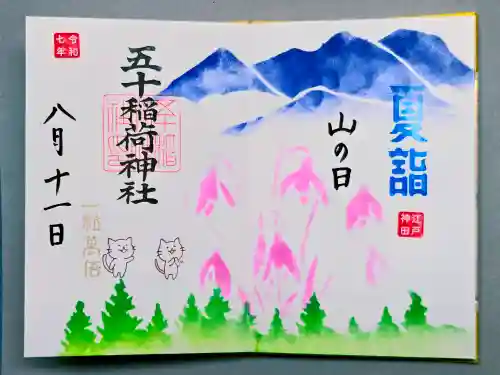 夏詣
江戸
神田
山の日
五十稲荷神社
一粒萬倍
令和
七年
八月十一日